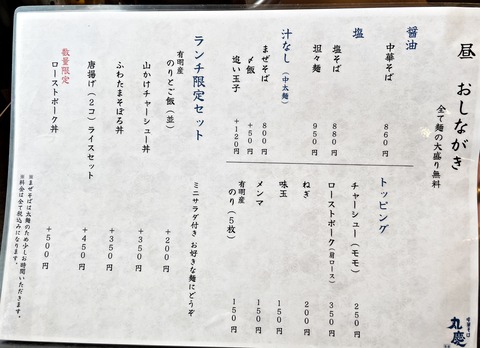 昼 おしながき
全て麺の大盛り無料
醤油
中華そば 860円
塩
塩そば 880円
坦々麺 950円
汁なし(中太麺)
まぜそば 800円
〆飯 +50円
追い玉子 +120円
トッピング
チャーシュー(モモ) 250円
ローストポーク(肩ロース) 350円
ねぎ 200円
味玉 150円
メンマ 150円
有明産
のり(5枚) 150円
ランチ限定セット
ミニサラダ付き お好きな麺にどうぞ
有明産
のりとご飯(並) +200円
山かけチャーシュー丼 +350円
ふわたまそぼろ丼 +350円
唐揚げ(2コ)ライスセット +450円
数量限定
ローストポーク丼 +500円
※まぜそばは太麺のため少しお時間いただきます。
※料金は全て税込みになります。
中華そば
丸慶